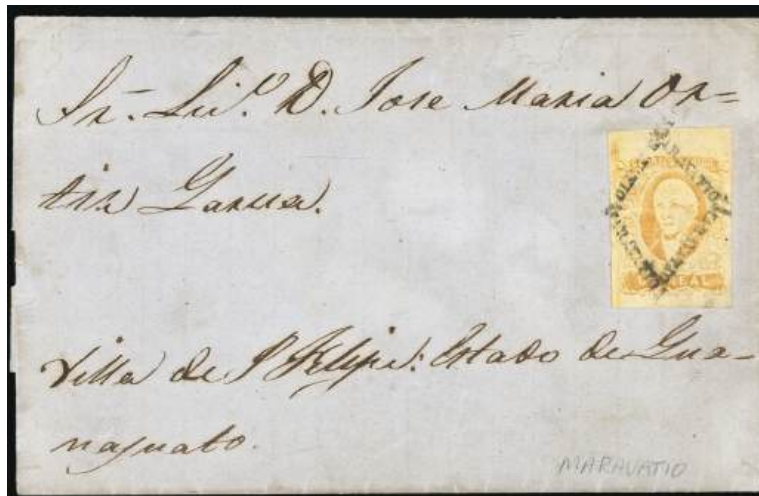 Sr. Lic.º D. Jose Maria Or=
tiz Garcia.
UN REAL
Villa de S Felipe: Estado de Gua-
najuato.
MARAVATIO